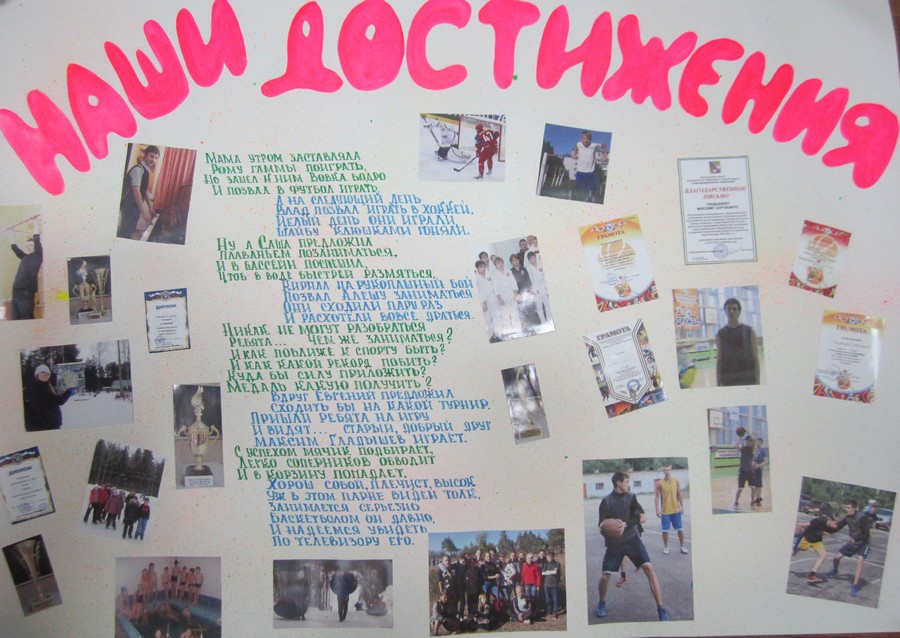 НАШИ ДОСТИЖЕНИЯ
МАМА УТРОМ ЗАСТАВЛЯЛА
РОМУ ГАММЫ ПОИГРАТЬ,
НО ЗАШЁЛ К НИМ ВОВКА БОДРО
И ПОЗВАЛ В ФУТБОЛ ИГРАТЬ.
А НА СЛЕДУЮЩИЙ ДЕНЬ
ВЛАД ПОЗВАЛ ИГРАТЬ В ХОККЕЙ.
ЦЕЛЫЙ ДЕНЬ ОНИ ИГРАЛИ
ШАЙБУ КЛЮШКАМИ ГОНЯЛИ.
НУ А САША ПРЕДЛОЖИЛ
ПЛАВАНЬЕМ ПОЗАНИМАТЬСЯ,
И В БАССЕЙН ПОСПЕШИЛ
ЧТОБ В ВОДЕ БЫСТРЕЙ РАЗМЯТЬСЯ.
КИРИЛЛ НА РУКОПАШНЫЙ БОЙ
ПОЗВАЛ АЛЕШУ ЗАНИМАТЬСЯ
ОНИ СХОДИЛИ ПАРУ РАЗ,
И РАСХОТЕЛИ ВОВСЕ ДРАТЬСЯ.
НИКАК НЕ МОГУТ РАЗОБРАТЬСЯ
РЕБЯТА... ЧЕМ ЖЕ ЗАНИМАТЬСЯ?
И КАК ПОБЛИЖЕ К СПОРТУ БЫТЬ?
И КАК КАКОЙ РЕКОРД ПОБИТЬ?
КУДА БЫ СИЛУ ПРИЛОЖИТЬ?
МЕДАЛЬ КАКУЮ ПОЛУЧИТЬ?
ВДРУГ ЕВГЕНИЙ ПРЕДЛОЖИЛ
СХОДИТЬ БЫ НА КАКОЙ ТУРНИР.
ПРИШЛИ РЕБЯТА НА ИГРУ
И ВИДЯТ... СТАРЫЙ, ДОБРЫЙ ДРУГ
МАКСИМ ГЛАДЫШЕВ ИГРАЕТ.
С УСПЕХОМ МЯЧИК ПОДБИРАЕТ,
ЛЕГКО СОПЕРНИКОВ ОБВОДИТ
И В КОРЗИНУ ПОПАДАЕТ.
ХОРОШ СОБОЙ, ПЛЕЧИСТ, ВЫСОК
УЖ В ЭТОМ ПАРНЕ ВИДЕН ТОЛК.
ЗАНИМАЕТСЯ СЕРЬЕЗНО
БАСКЕТБОЛОМ ОН ДАВНО,
И НАДЕЕМСЯ УВИДЕТЬ
ПО ТЕЛЕВИЗОРУ ЕГО.
БЛАГОДАРСТВЕННОЕ
ПИСЬМО
ГРАМОТА
ГРАМОТА
ГРАМОТА
ДИПЛОМ
ДИПЛОМ